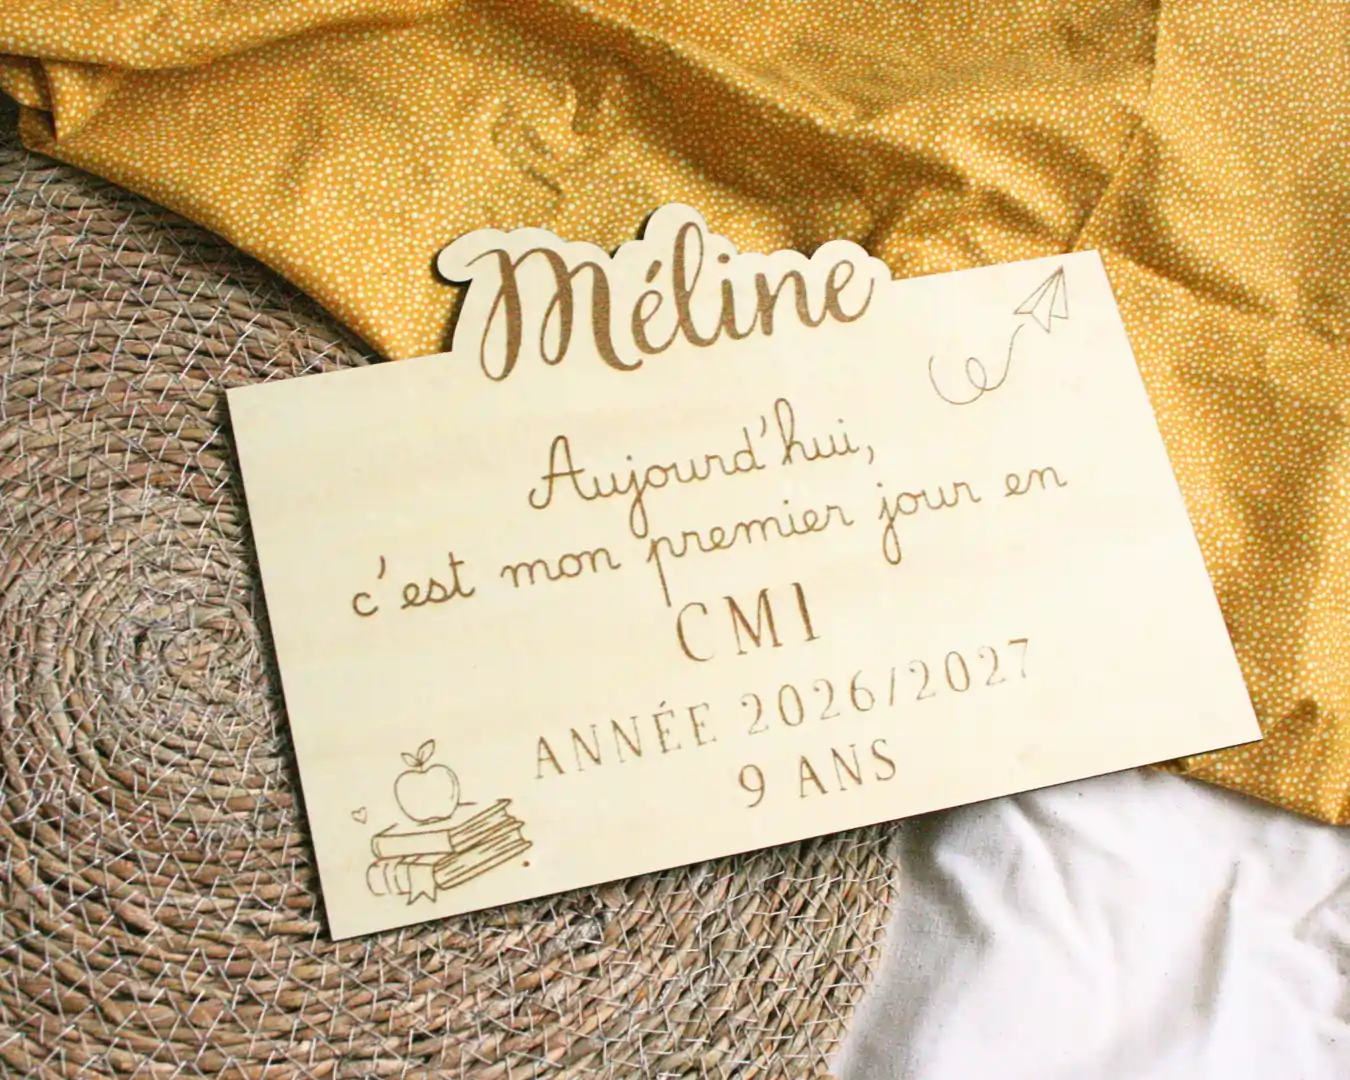 Méline
Aujourd'hui,
c'est mon premier jour en
CM1
ANNÉE 2026/2027
9 ANS